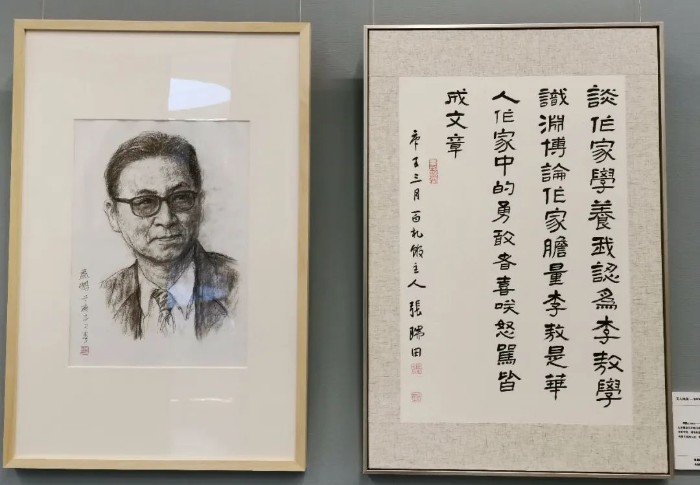 談作家學養我認爲李敖學
識淵博論作家膽量李敖是華
人作家中的勇敢者喜咲怒駡皆
成文章
庚子三月百札館主人張瑞田